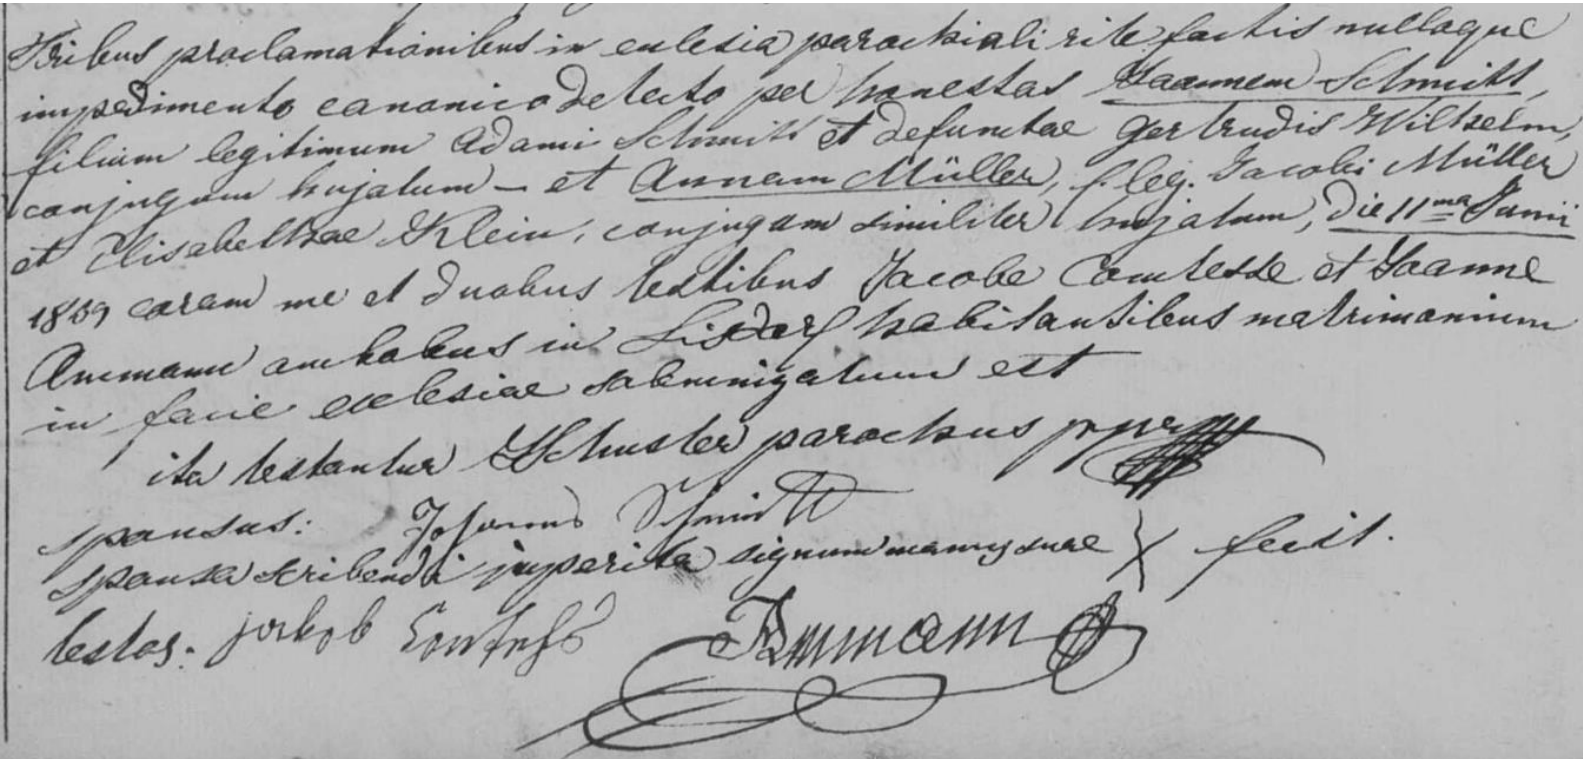 Tribus proclamationibus in eclesia parochiali rite factis nulloque
impedimento canonico detecto per honestas Joannem Schmitt,
filium legitimum Adami Schmitt et defunctae Gertrudis Wilhelm,
conjugum hujatum – et Annam Müller, f. leg. Jacobi Müller
et Elisabethae Klein, conjugam similiter hujatum, die 11ma Junii
1859 coram me et duobus testibus Jacobo Comtesse et Joanne
Ammann ambobus in Lisdorf habitantibus matrimonium
in facie ecclesiae solemnizatum est
ita testantur Schuster parochus
sponsus: Johannes Schmitt
sponsa scribendi imperita signum manus suae X fecit.
testes: Jakob Contesse Ammann